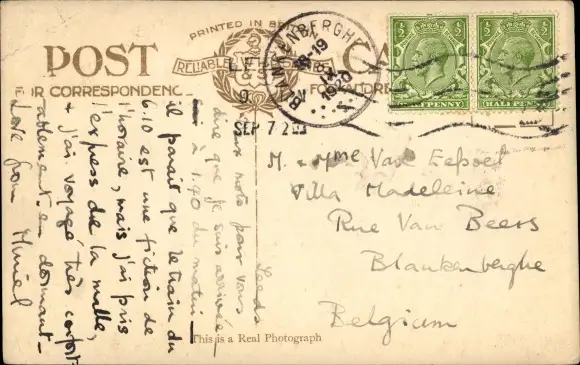 PRINTED IN
POST
RELIABLE
FOR CORRESPONDENCE
BLANKENBERGHE
18-19
1920
SEP 7 2
½ ½
HALFPENNY
Leeds
note pour vous
dire que je suis arrivée
à 1.40 du matin -
il parait que le train du
6.10 est une fiction de
l'horaire, mais j'ai pris
l'express de la malle,
+ j'ai voyagé très confort-
ablement en dormant -
Love from Muriel
M. + Mme Van
Villa Madeleine
Rue Van Beers
Blankenberghe
Belgium
This is a Real Photograph